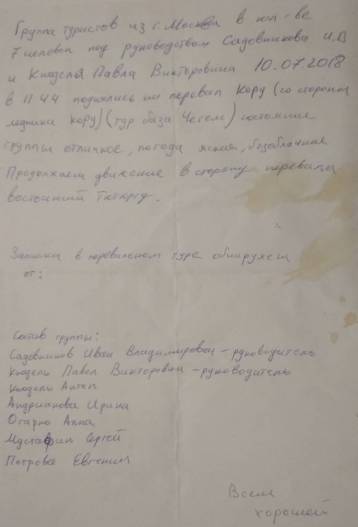 Группа туристов из г. Москва в кол-ве
7 человек под руководством Садовникова И.В
и Князева Павла Викторовича 10.07.2018
в 11 44 поднялись на перевал Кору (со стороны
ледника Кору) (тур база Чегем) состояние
группы отличное, погода ясная, безоблачная
Продолжаем движение в сторону перевала
восточный
Записка в перевальном туре обнаружена
от:
Состав группы:
Садовников Иван Владимирович - руководитель
Князев Павел Викторович - руководитель
Андрианова Ирина
Анна
Мустафин Сергей
Петрова Евгения
Всем
хорошей